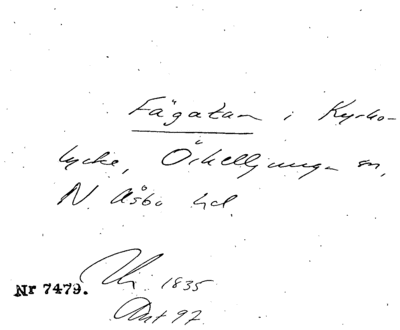 Fägatan i Kyrko-
lycke, Örkelljunga sn,
N. Åsbo hd.
1835
Nr 7479.
Ant 97